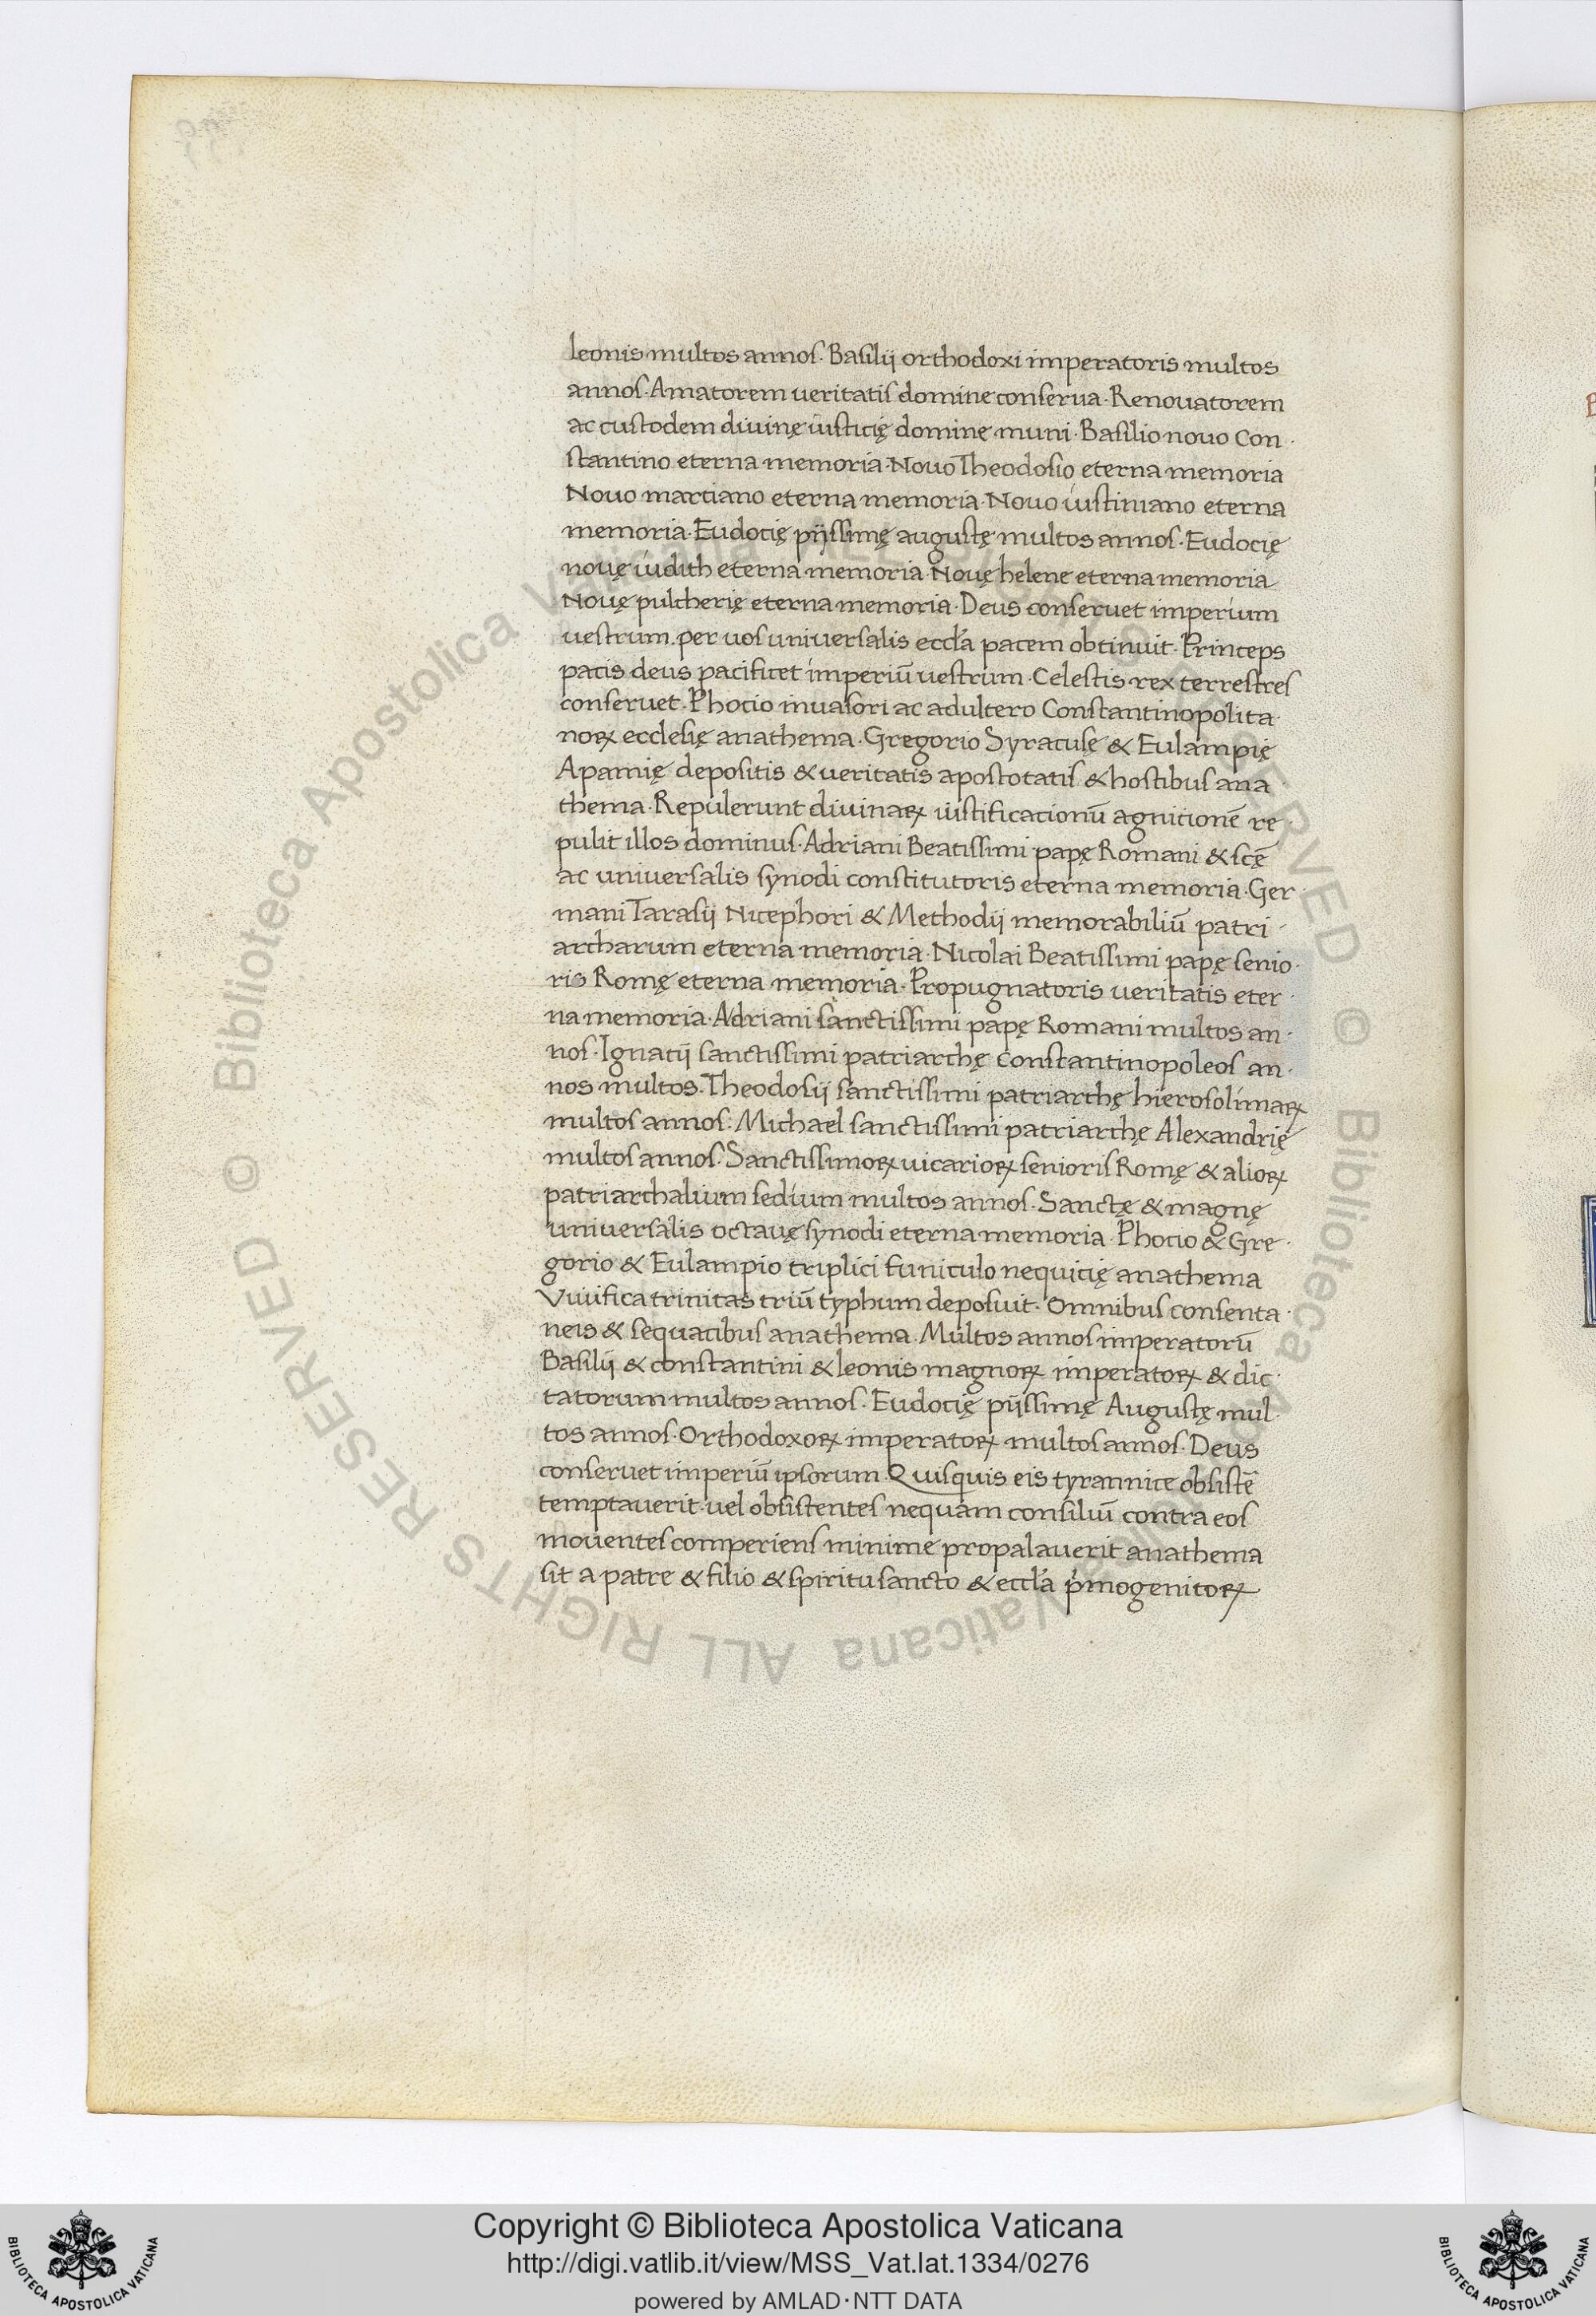 leonis multos annos. Basilij orthodoxi imperatoris multos
annos. Amatorem ueritatis domine conserua. Renouatorem
ac custodem diuinę iusticię dominę muni. Basilio nouo Con
stantino eterna memoria. Nouo Theodosio eterna memoria
Nouo martiano eterna memoria. Nouo iustiniano eterna
memoria. Eudocię pijssimę augustę multos annos. Eudocię
nouę iudith eterna memoria. Nouę helene eterna memoria
Nouę pulcherię eterna memoria. Deus conseruet imperium
uestrum. per uos uniuersalis eccl̄a pacem obtinuit. Princeps
pacis deus pacificet imperiū uestrum. Celestis rex terrestres
conseruet. Phocio inuasori ac adultero Constantinopolita
noꝝ ecclesię anathema. Gregorio Syracusę & Eulampię
Apamię depositis & ueritatis apostotatis & hostibus ana
thema. Repulerunt diuinaꝝ iustificationū agnitionē re
pulit illos dominus. Adriani Beatissimi papę Romani & scē
ac uniuersalis synodi constitutoris eterna memoria. Ger
mani Tarasij Nicephori & Methodij memorabiliū patri
archarum eterna memoria. Nicolai Beatissimi papę senio
ris Romę eterna memoria. Propugnatoris ueritatis eter
na memoria. Adriani sanctissimi papę Romani multos an
nos. Ignatij sanctissimi patriarchę Constantinopoleos an
nos multos. Theodosij sanctissimi patriarchę hierosolimaꝝ
multos annos. Michael sanctissimi patriarchę Alexandrię
multos annos. Sanctissimoꝝ uicarioꝝ senioris Romę & alioꝝ
patriarchalium sedium multos annos. Sanctę & magnę
uniuersalis octauę synodi eterna memoria. Phocio & Gre
gorio & Eulampio triplici funiculo nequicię anathema
Viuifica trinitas triū typhum deposuit. Omnibus consenta
neis & sequacibus anathema. Multos annos imperatorū
Basilij & constantini & leonis magnoꝝ imperatoꝝ & dic
tatorum multos annos. Eudocię pijssimę Augustę mul
tos annos. Orthodoxoꝝ imperatoꝝ multos annos. Deus
conseruet imperiū ipsorum. Quisquis eis tyrannice obsistē
temptauerit. uel obsistentes nequam consiliū contra eos
mouentes comperiens minime propalauerit anathema
sit a patre & filio & spiritu sancto & eccl̄a pͥmogenitoꝝ
© Biblioteca Apostolica Vaticana ALL RIGHTS RESERVED © Biblioteca Apostolica Vaticana ALL RIGHTS RESERVED
Copyright © Biblioteca Apostolica Vaticana
http://digi.vatlib.it/view/MSS_Vat.lat.1334/0276
powered by AMLAD·NTT DATA
BIBLIOTECA APOSTOLICA VATICANA
BIBLIOTECA APOSTOLICA VATICANA